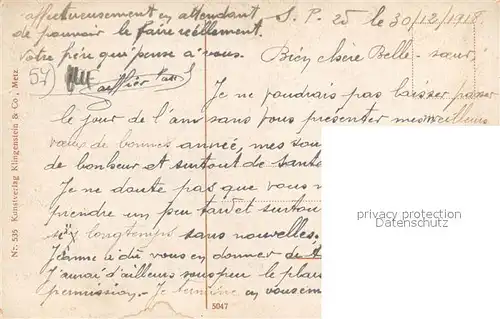 S. P. 25 le 30/12/1918
Bien chère Belle-sœur,
Je ne voudrais pas laisser passer
le jour de l'an sans vous présenter mes meilleurs
vœux de bonne année, mes sou
de bonheur et surtout de santé
Je ne doute pas que vous
prendre un peu tard et surtou
si longtemps sans nouvelles.
Jeanne a dû vous en donner de
J'aurai d'ailleurs sous peu le plais
permission. Je termine en vous em
affectueusement en attendant
de pouvoir le faire réellement.
Votre frère qui pense à vous.
54)
Nr. 535 Kunstverlag Klingenstein & Co., Metz
5047
privacy protection
www.oldthing.de